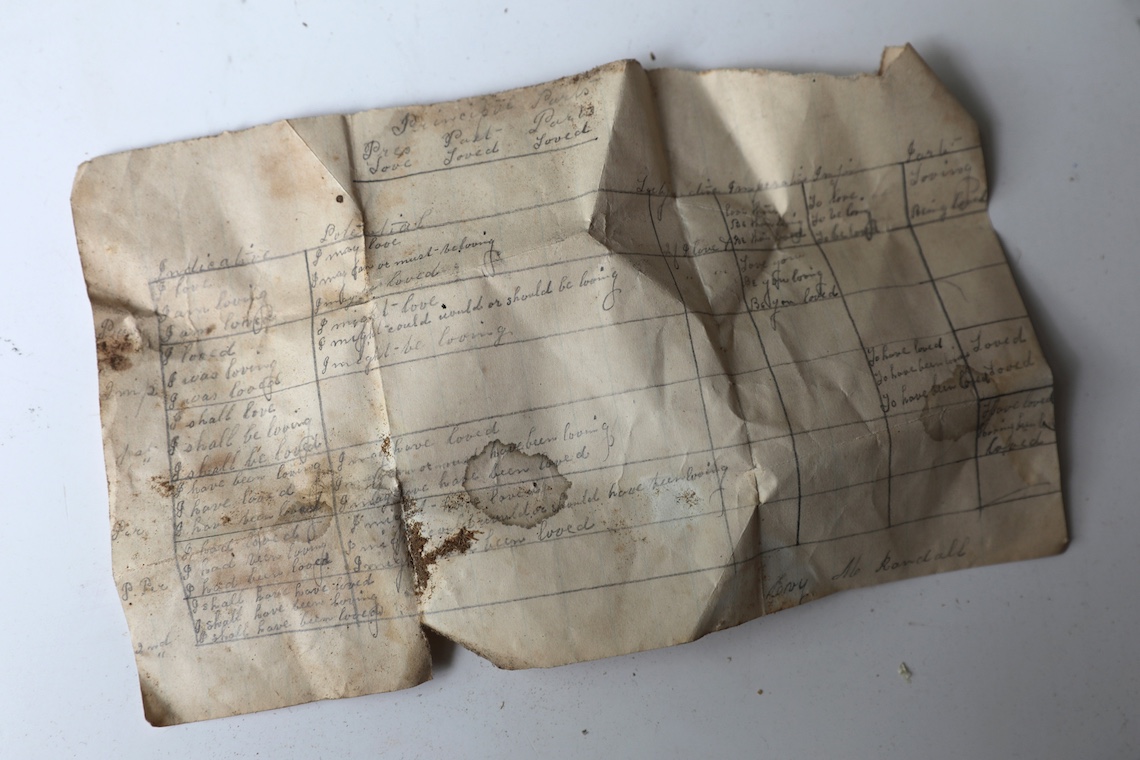 Principle Parts
Pres Past Part
Love Loved Loved
Indicative Potential Imperative Infin Part
I love
I am loving
I am loved
I may love
I may can or must be loving
I may be loved
If I love
To love
To be loving
To be loved
Loving
Being loved
Imp.
I loved
I was loving
I was loved
I might love
I might could would or should be loving
I might be loving
Be you loving
Be you loved
1st
I shall love
I shall be loving
I shall be loved
Per.
I have been loving
I have loved
I have been loved
I may have loved
I may can or must have been loving
I may have been loved
To have loved
To have been loving
To have been loved
Loved
Loved
Having been
loved
P Per
I had loved
I had been loving
I had been loved
would have been loving
been loved
2nd "
I shall have loved
I shall have been loving
I shall have been loved
M Randall